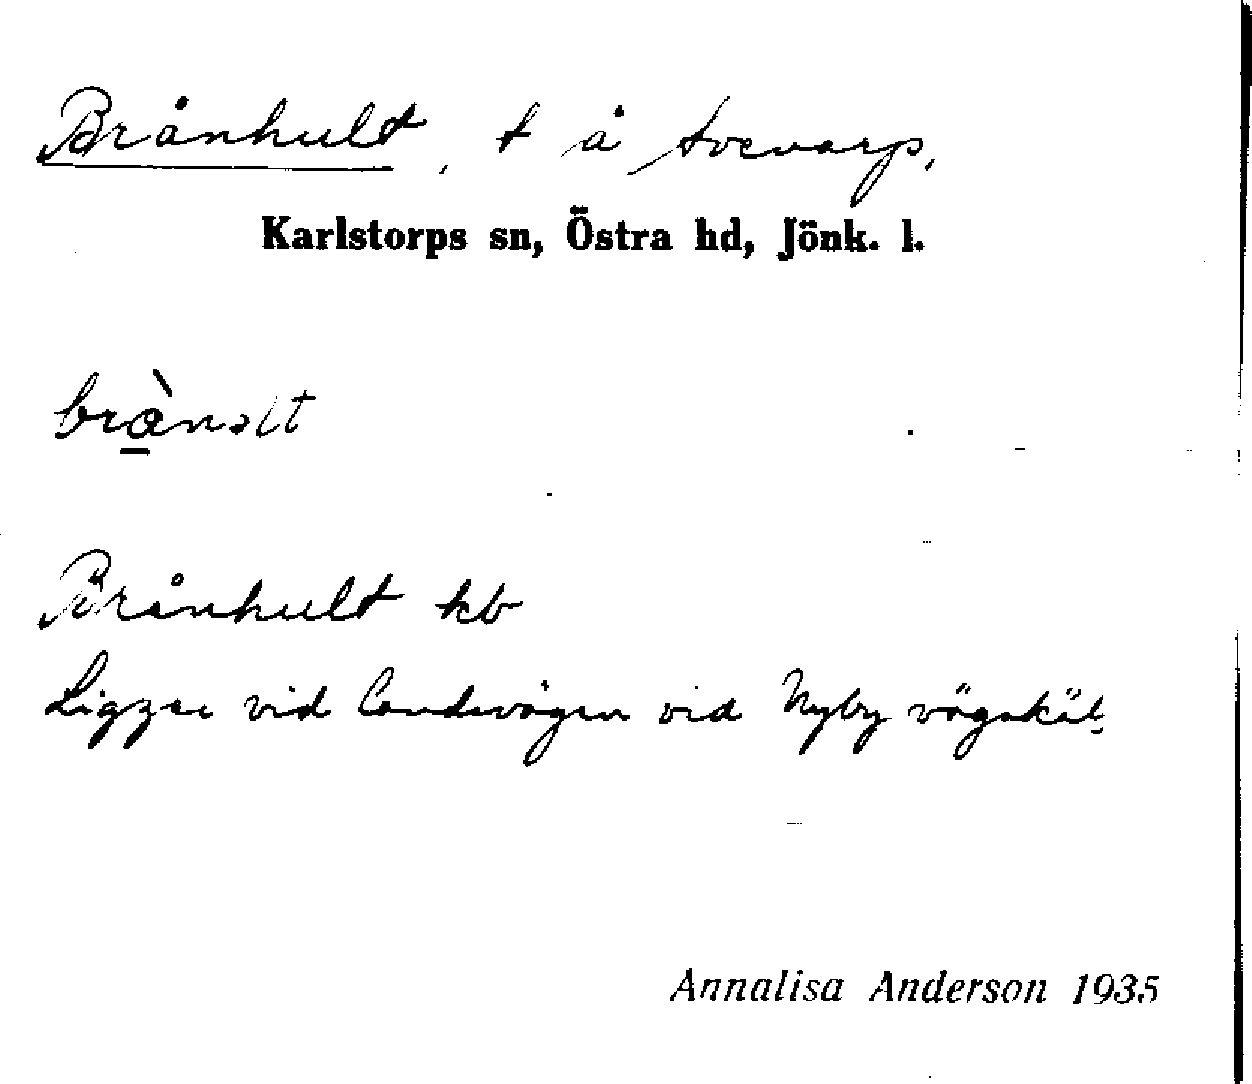 Brånhult, t å Tvevarp,
Karlstorps sn, Östra hd, Jönk. l.
brànəlt
Brånhult kb
Ligger vid landsvägen vid Nyby vägskäl
Annalisa Anderson 1935